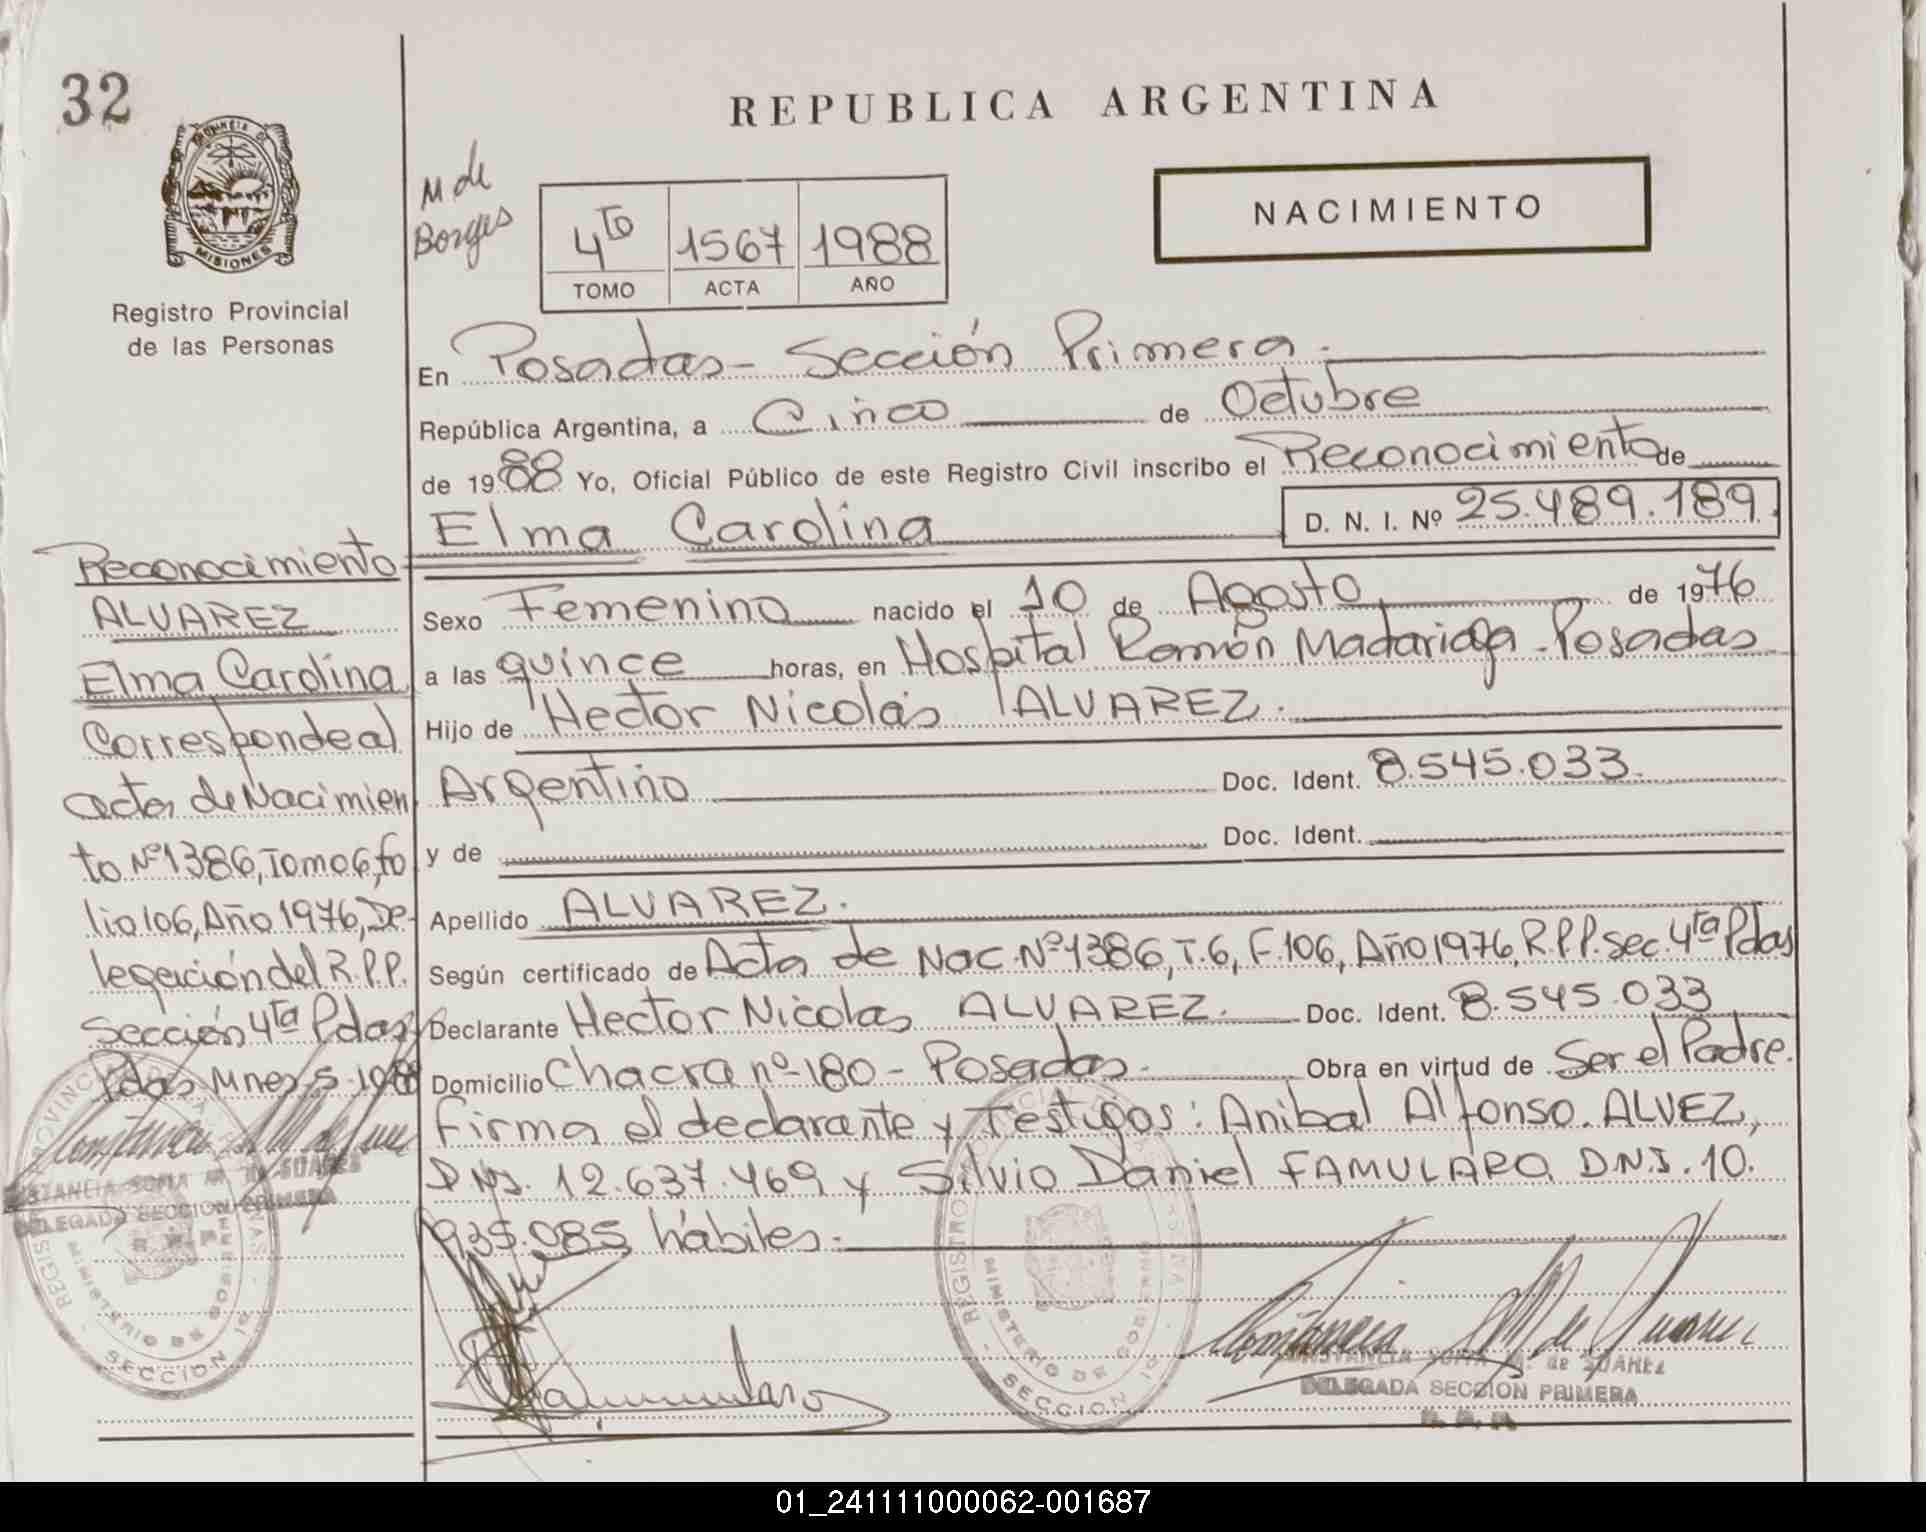 32
REPUBLICA ARGENTINA
PROVINCIA DE
MISIONES
Registro Provincial
de las Personas
M de
Borges
4to 1567 1988
TOMO ACTA AÑO
NACIMIENTO
En Posadas - Sección Primera.
República Argentina, a Cinco de Octubre
de 1988 Yo, Oficial Público de este Registro Civil inscribo el Reconocimiento de
Elma Carolina D. N. I. Nº 25.489.189.
Sexo Femenino nacido el 10 de Agosto de 1976
a las quince horas, en Hospital Ramón Madariaga - Posadas
Hijo de Hector Nicolás ALVAREZ.
Argentino Doc. Ident. 8.545.033.
y de Doc. Ident.
Apellido ALVAREZ.
Según certificado de Acta de Nac. Nº 1386, T. 6, F. 106, Año 1976, R.P.P. Sec. 4ta Pdas
Declarante Hector Nicolas ALVAREZ. Doc. Ident. 8.545.033
Domicilio Chacra nº 180 - Posadas. Obra en virtud de Ser el Padre.
Firma el declarante y Testigos: Anibal Alfonso ALVEZ,
D.N.I. 12.637.469 y Silvio Daniel FAMULARO D.N.I. 10.
935.085 hábiles.
Reconocimiento
ALVAREZ
Elma Carolina
Corresponde al
acta de Nacimien
to Nº 1386, Tomo 6, fo
lio 106, Año 1976, De-
legación del R.P.P.
Sección 4ta Pdas
Pdas Mnes
CONSTANCIA SOFIA M. de SUAREZ
DELEGADA SECCION PRIMERA
R. P. P.
CONSTANCIA SOFIA M. de SUAREZ
DELEGADA SECCION PRIMERA
R. P. P.
REGISTRO
MINISTERIO DE GOBIERNO
SECCION
01_241111000062-001687